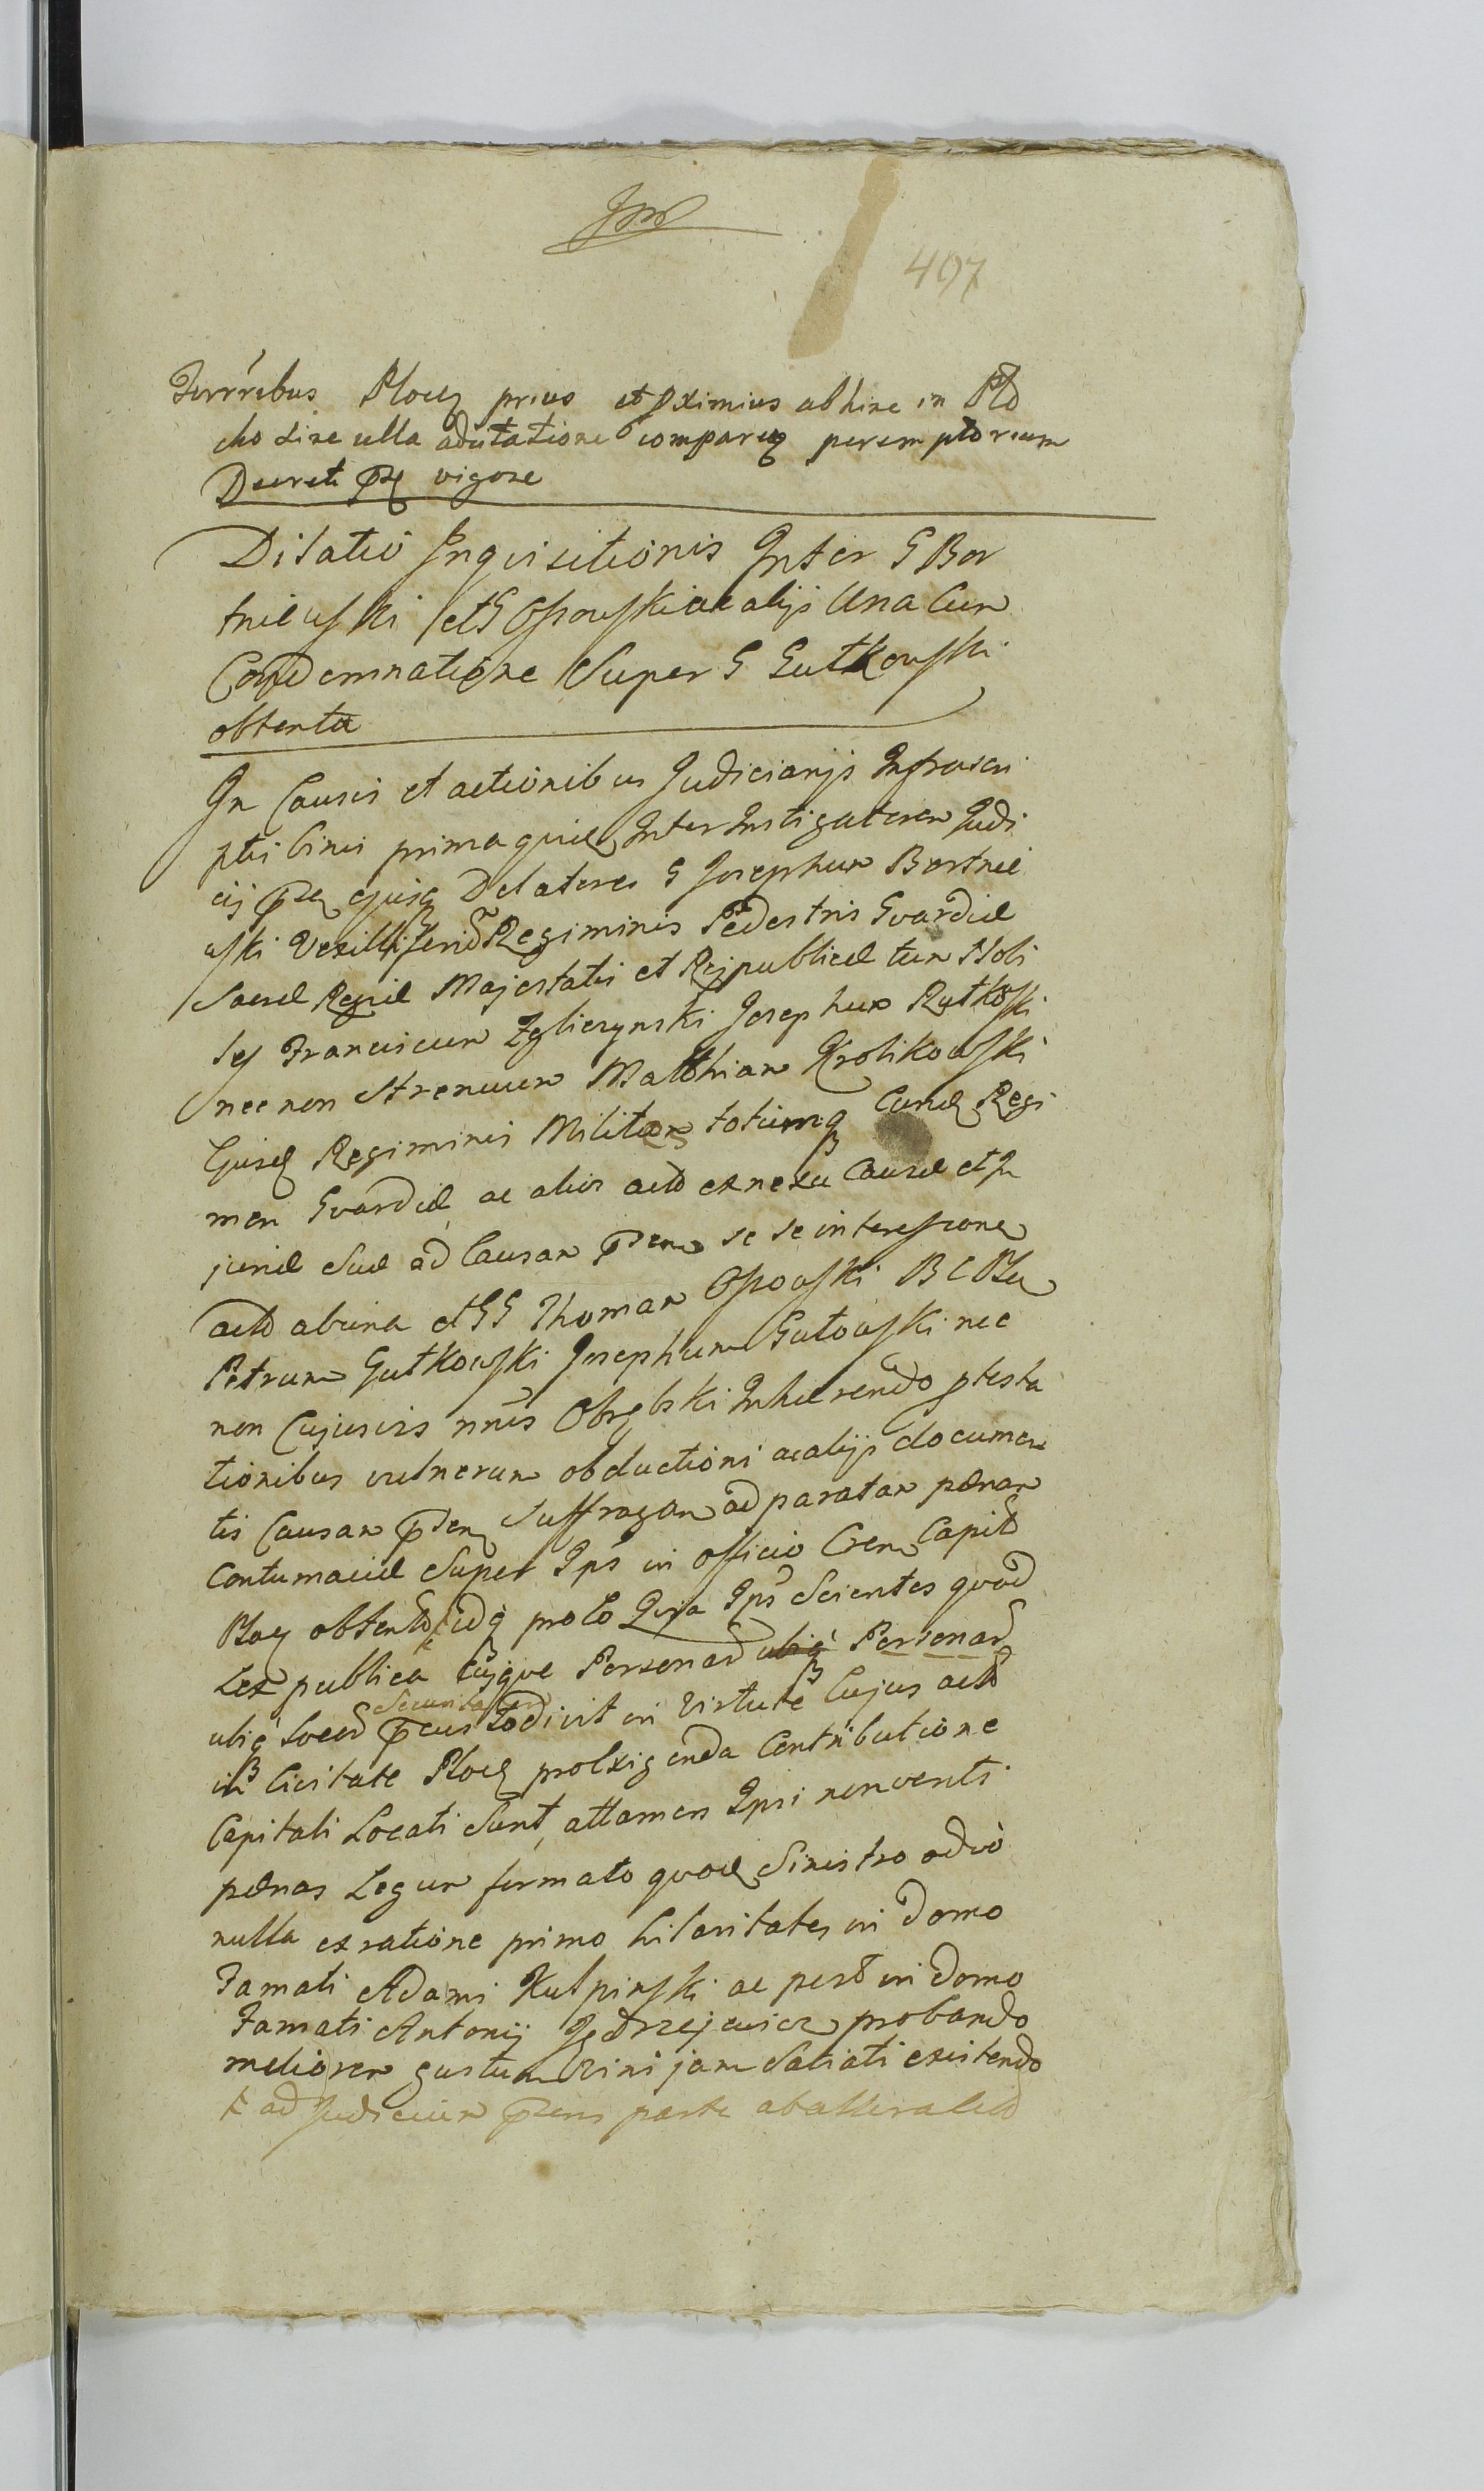 407
Terrrebus Plocen prius et pximius ab hinc in Plo
cko sine ulla adcitatione comparen peremptorium
Decreti pntis vigore
Dilatio Inqvisitionis Inter G Bor
tnieuski et G Ossouski ac alijs Una Cum
Condemnatione Super G Gutkouski
obtenta
In Causis et actionibus Judicianijs Infrascri
ptis binis prima qvidem Inter Instigatorem Judi
cij pntis ejusq Delatores G Josephum Bortnie
uski Vexilliferum Regiminis Pedestris Gvardiæ
Sacræ Regiæ Majestatis et Rejpublicæ tum Nobi
les Franciscum Zglieczynski Josephum Rutkoski
nec non Strenuum Matthiam Krolikouski
Ejusd Regiminis Militem totumq Eund Regi
men Gvardiæ ac alios actores ex nexu Causæ et In
juriæ Suæ ad Causam pntem se se interessione
actores ab una et GG Thomam Ossouski B C Plen
Petrum Gutkouski Josephum Gutouski nec
non Cujusvis nnis Obrębski Inhærendo ptesta
tionibus vulnerum obductioni ac alijs documen
tis Causam pntem Suffragan ad paratam pænam
Contumaciæ Super Ips in officio Cren Capit
Plocen obtent idq pro eo Qvia Ips Scientes qvod
Lex publica Cujqve Personar ubiq Personar
ubiq locor Securitatem pcustodivit in Virtute Cujus actores
in Civitate Plocen pro Exigenda Contributione
Capitali Locati Sunt, attamen Ipsi non veriti
pænas Legum formato qvod Sinistro odio
nulla ex ratione primo hilaritates in domo
Famati Adami Kulpinski ac post in domo
Famati Antonij Jędrzejewicz probando
meliorem gustum Vini jam Satiati existendo
ad Judicium pntis parte ab altera